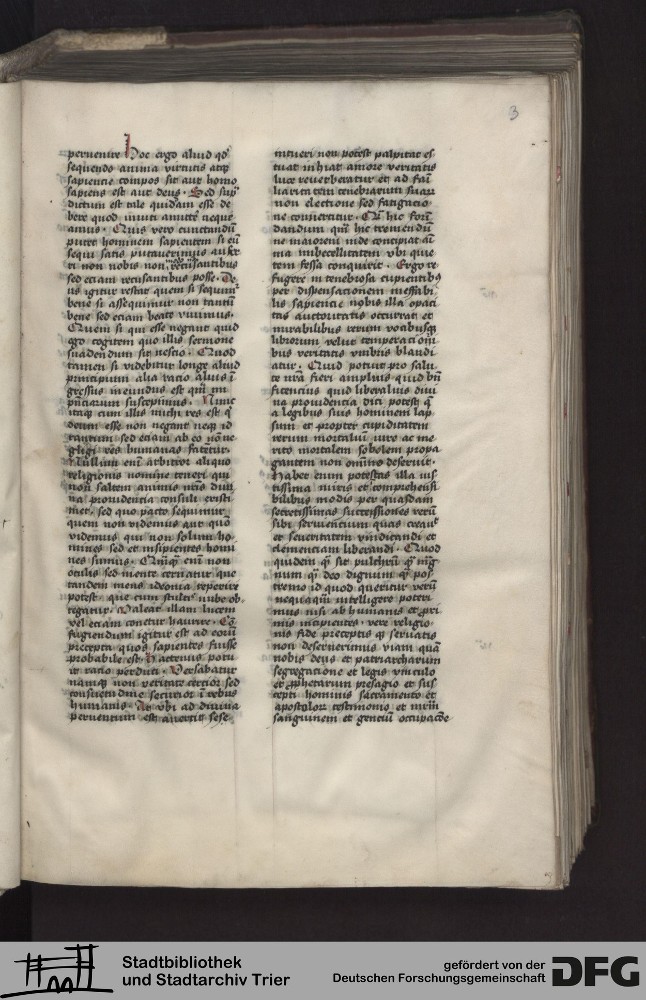 3
peruenire Hoc ergo aliud qd'
sequendo anima virtutis atqꝫ
sapiencie compos sit aut homo
sapiens est aut deus · Sed supͣ
dictum est tale quidam esse de
bere quod inuiti amittē neque
amus · Cuius vero cunctandū
putet hominem sapientem si eū
sequi satis putauerimus aufer
ri non nobis non recusantibus
sed eciam recusantibus posse · De
us igitur restat quem si sequimͬ
bene si assequimur non tantū
bene sed eciam beate viuimus ·
Quem si qui esse negant quid
ego cogitem quo illis sermone
suadendum sit nescio · Quod
tamen si videbitur longe aliud
principium alia racio alius ī
gressus ineundus est qm̄ in
pn̄ciarum suscepimus · Nunc
itaqꝫ cum illis michi res est q̄
deum esse non negant neqꝫ id
tantum sed eciam ab eo nō ne
gligi res humanas fatētur ·
Nullum enī arbitror aliquo
religionis nomine teneri qui
non saltem animis nr̄is diui
na prouidencia consuli existi
met · sed quo pacto sequimur
quem non videmus aut quō
videmus qui non solum ho
mines sed et insipientes homi
nes sumus · Qm̄qꝫ enī non
oculis sed mente cernatur que
tandem mens ideonia reperire
potest · que cum stulticie nube ob
tegatur · valeat illam lucem
vel eciam conetur haurire · Cō
fugiendum igitur est ad eorū
precepta quos sapientes fuisse
probabile est · Hactenus potu
it racio perduci · Versabatur
namqꝫ non veritate cercior sed
consuetudine securior ī rebus
humanis · At vbi ad diuina
peruentum est auertit sese
intueri non potest palpitat es
tuat inhiat amore veritatis
luce reuerberatur et ad fami
liaritatem tenebrarum suarum
non electione sed fatigacio
ne conuertitur · Qm̄ hic formi
dandum qm̄ hic tremendū
ne maiorem inde concipiat ani
ma imbecillitatem vbi quie
tem fessa conquirit · Ergo re
fugere in tenebrosa cupientibꝰ
per dispensacionem ineffabi
lis sapiencie nobis illa opaci
tas auctoritatis occurrat et
mirabilibus rerum vocibusqꝫ
librorum velut temperacioni
bus veritatis vmbris blandi
atur · Quid potuit pro salu
te nr̄a fieri amplius quid bn̄
ficencius quid liberalius diui
na prouidencia dici potest q̄
a legibus suis hominem lap
sum et propter cupiditatem
rerum mortalium iure ac me
rito mortalem sobolem propa
gantem non omīno deseruit ·
Habet enim potestas illa ius
tissima miris et comprehensi
bilibus modis per quasdam
secretissimas successiones rerū
sibi seruiencium quas creauit
et seueritatem vindicandi et
clemenciam liberandi · Quod
quidem q̄ sit pulchrū q̄ mag
num q̄ deo dignum q̄ pos
tremo id quod queritur verū
nequaqm̄ intelligere poteri
mus nisi ab humanis et proxi
mis incipientes · vere religio
nis fide preceptis qꝫ seruatis
non deseruerimus viam quā
nobis deus et patriarcharum
segregacione et legis vinculo
et prophetarum presagio et sus
cepti hominis sacramento et
apostolorum testimonio et martirum
sanguinem et gencium occupacōe
Stadtbibliothek
und Stadtarchiv Trier
gefördert von der
Deutschen Forschungsgemeinschaft
DFG